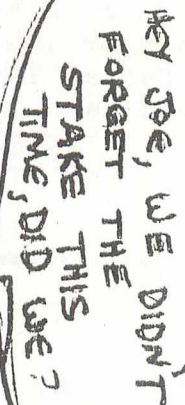 HEY JOE, WE DIDN'T
FORGET THE
STAKE THIS
TIME, DID WE?